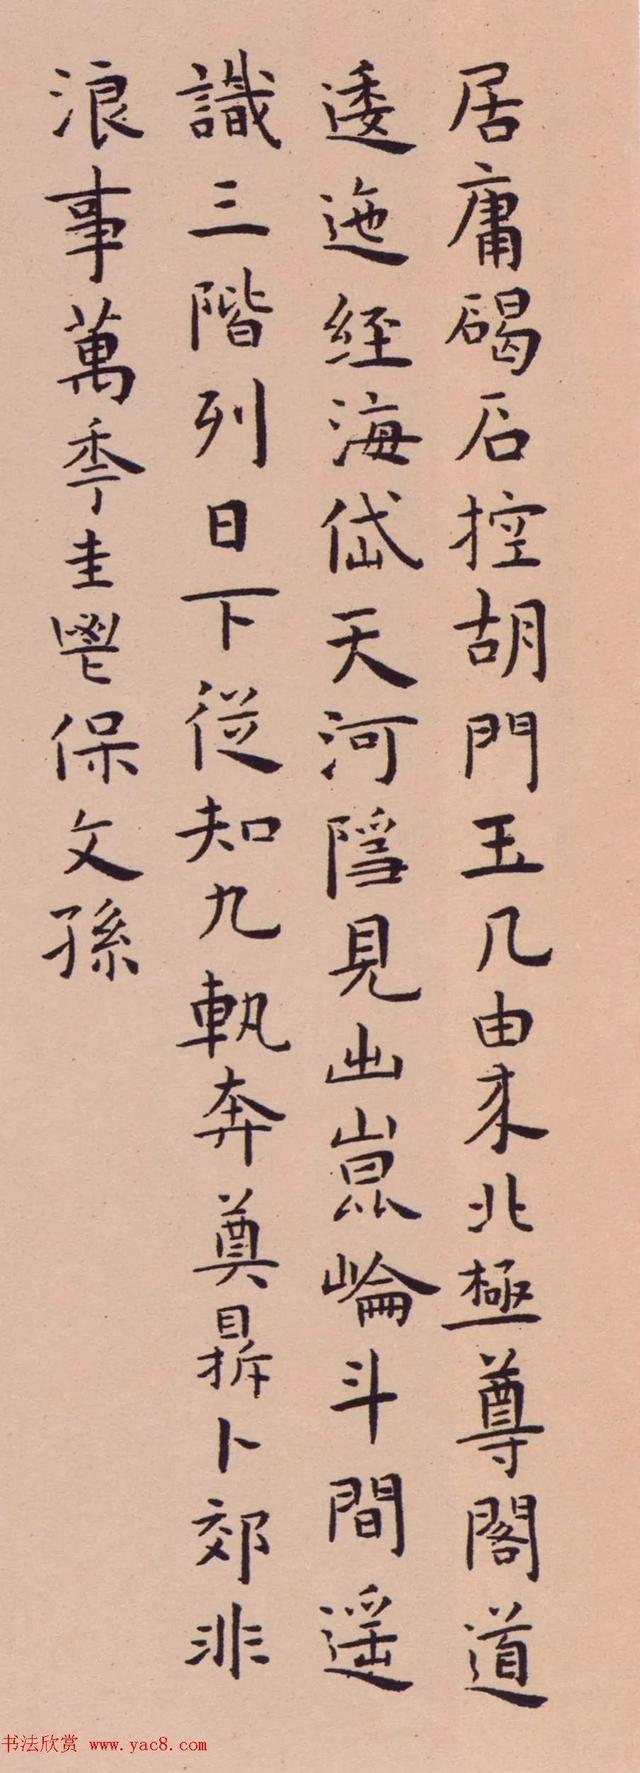 居庸碣石控胡門玉几由来北極尊閣道
逶迤經海岱天河隱見出崑崙斗間遥
識三階列日下從知九軌奔奠鼎卜郊非
浪事萬季圭鬯保文孫
书法欣赏 www.yac8.com